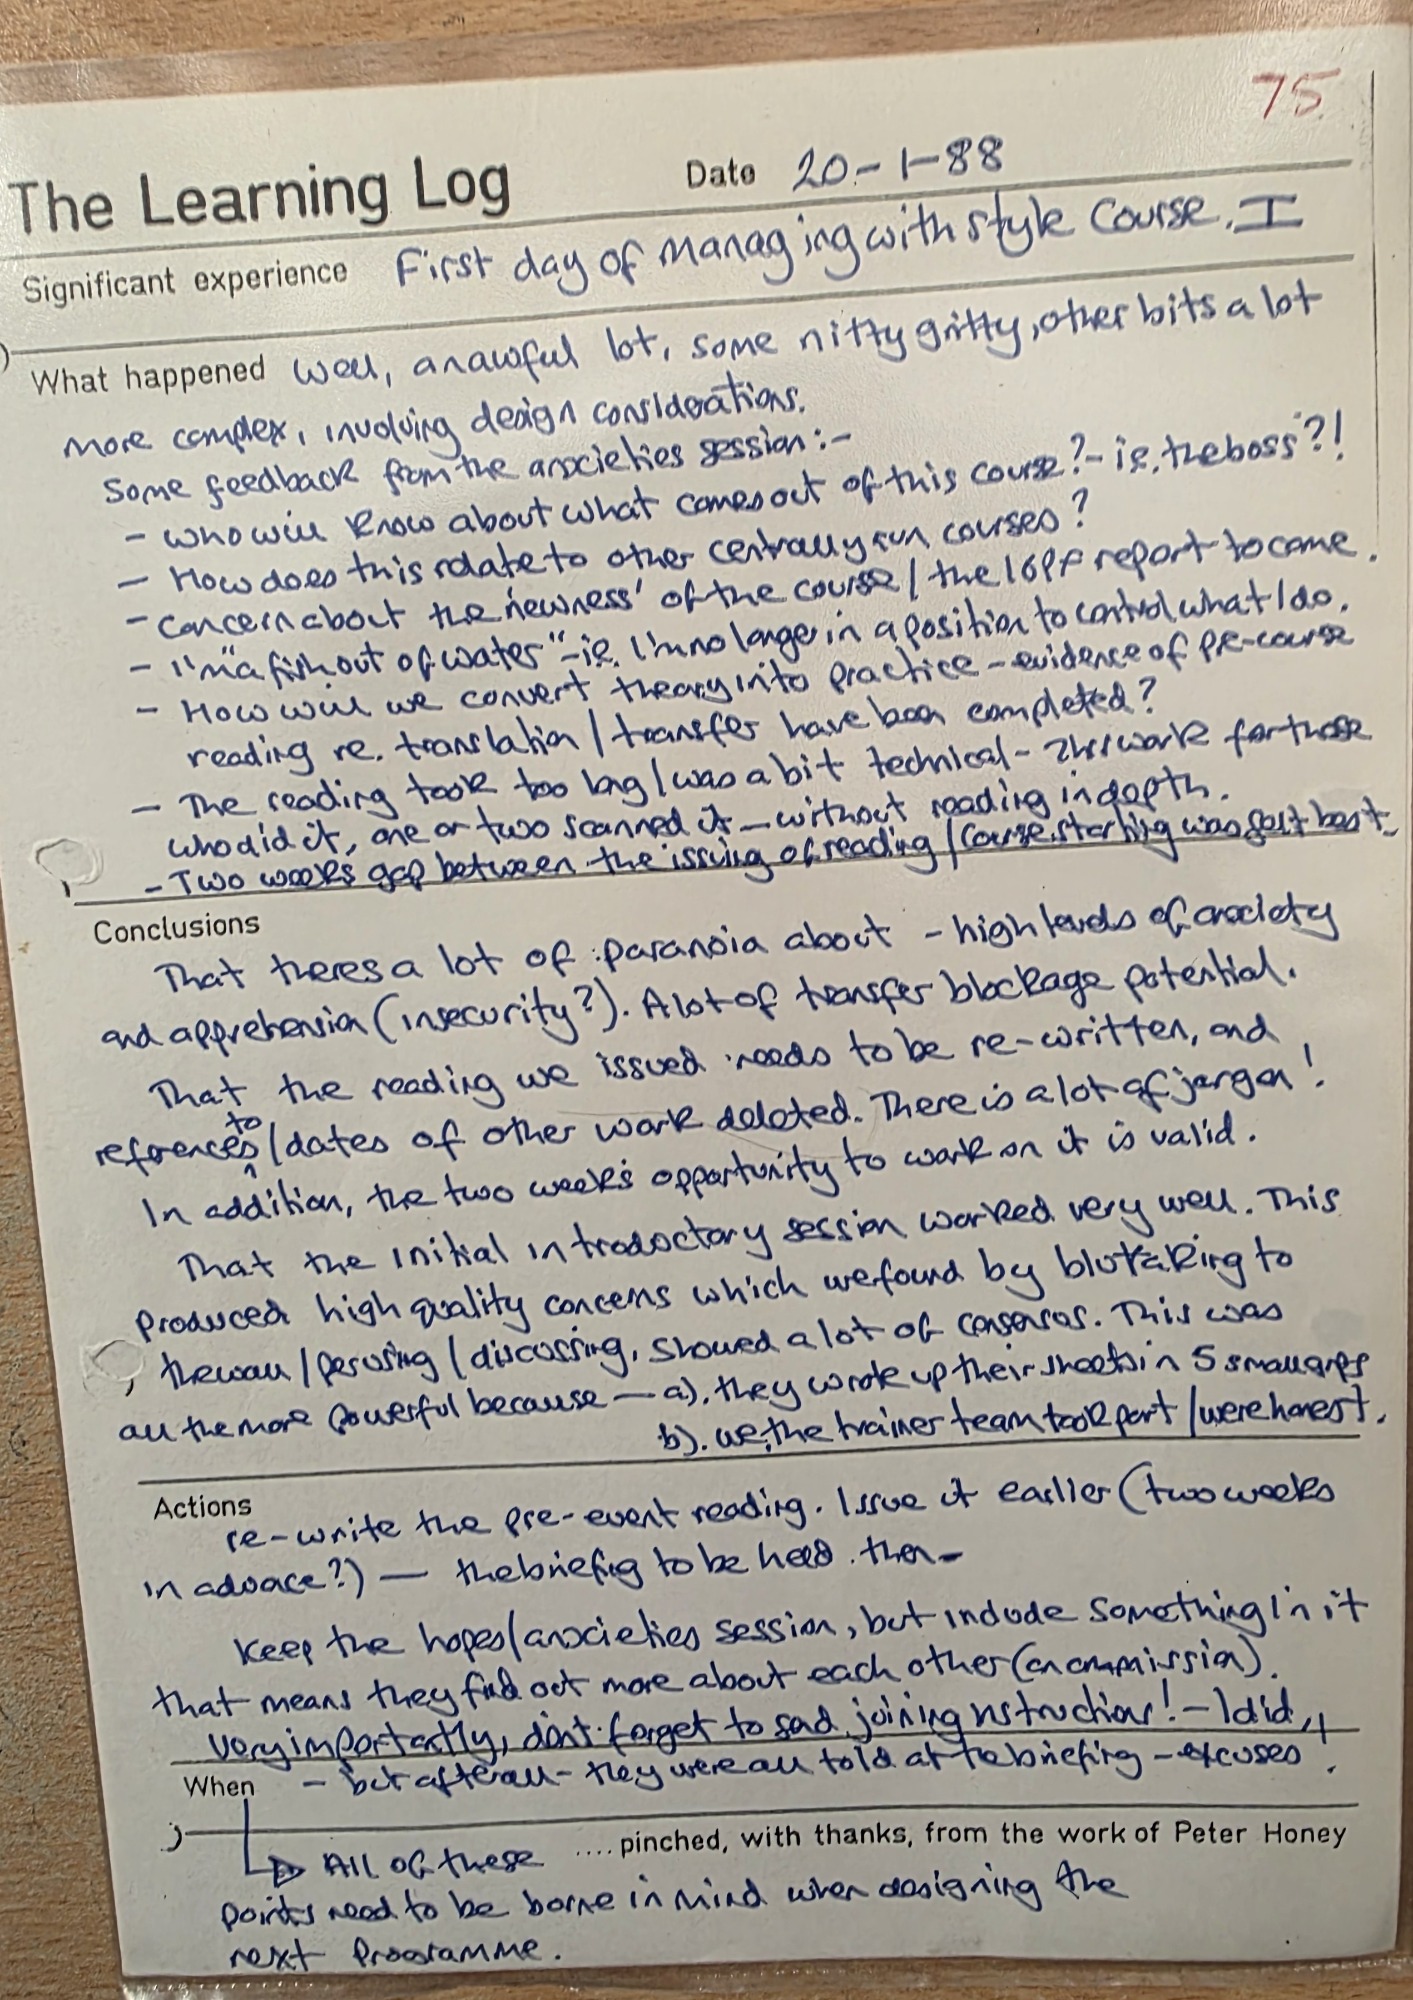 75
The Learning Log Date 20-1-88
Significant experience First day of Managing with style Course. I
What happened Well, an awful lot, some nitty gritty, other bits a lot
more complex, involving design considerations.
Some feedback from the anxieties session :-
- who will know about what comes out of this course? - i.e. the boss"?!
- How does this relate to other centrally run courses?
- concern about the 'newness' of the course / the report to come.
- I'm "a fish out of water" - i.e. I'm no longer in a position to control what I do.
- How will we convert theory into practice - evidence of pre-course
reading re. translation / transfer have been completed?
- The reading took too long / was a bit technical - 2hrs work for those
who did it, one or two scanned it - without reading in depth.
- Two weeks gap between the issuing of reading / course starting was felt best.
Conclusions
That theres a lot of paranoia about - high levels of anxiety
and apprehension (insecurity?). A lot of transfer blockage potential.
That the reading we issued needs to be re-written, and
to
references / dates of other work deleted. There is a lot of jargon!
In addition, the two weeks opportunity to work on it is valid.
That the initial introductory session worked very well. This
produced high quality concerns which we found by blutaking to
the wall / perusing / discussing, showed a lot of consensus. This was
all the more powerful because - a). they wrote up their sheets in 5 small grps
b). we, the trainer team took part / were honest.
Actions
re-write the pre-event reading. Issue it earlier (two weeks
in advance?) - the briefing to be held then -
Keep the hopes / anxieties session, but include something in it
that means they find out more about each other (en commission).
Very importantly, don't forget to send joining instructions! - I did,
When - but after all - they were all told at the briefing - excuses!
.... pinched, with thanks, from the work of Peter Honey
All of these
points need to be borne in mind when designing the
next Programme.